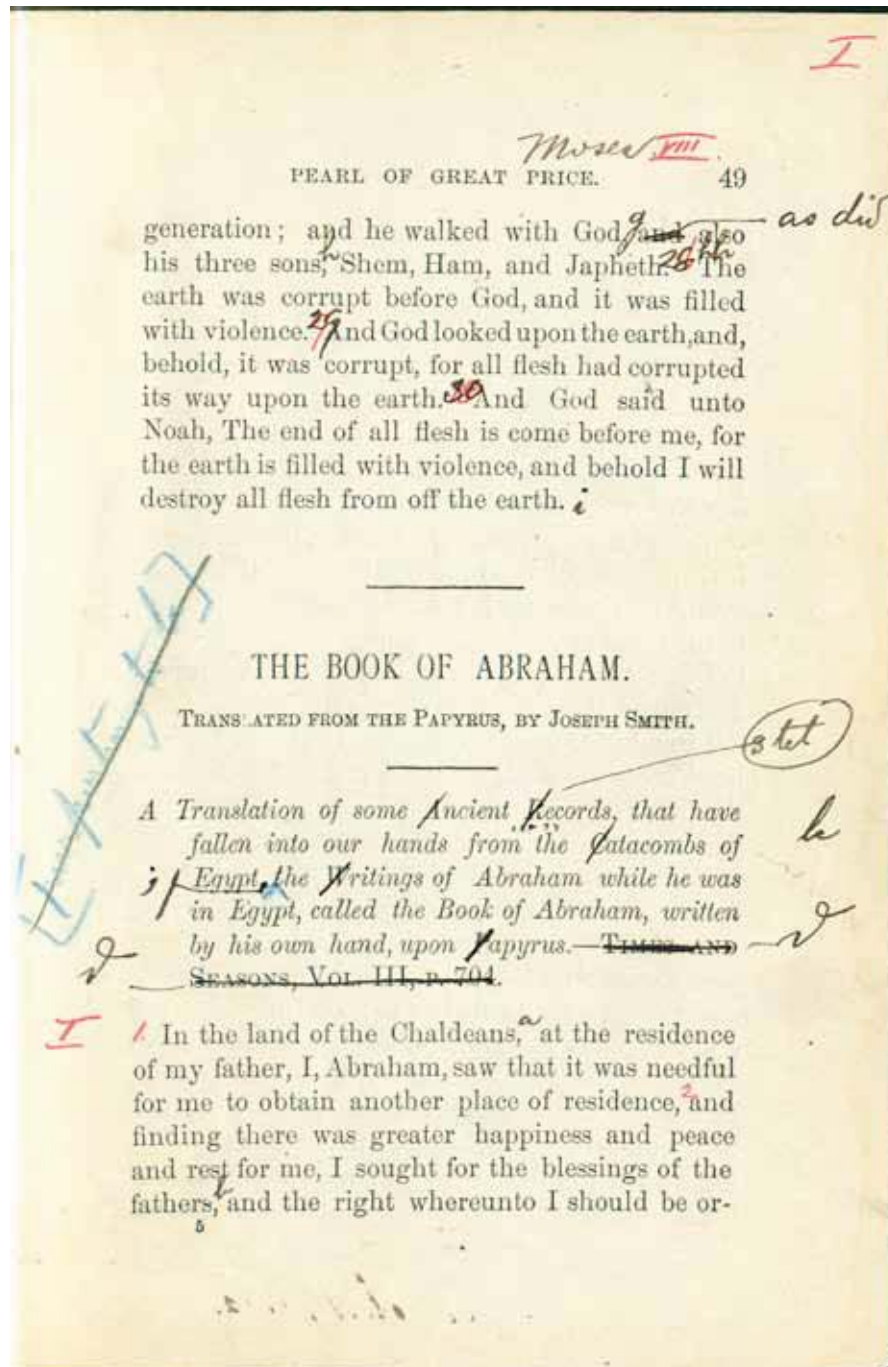 I
Moses VIII.
PEARL OF GREAT PRICE. 49
generation; and he walked with God, and also as did
g
his three sons, Shem, Ham, and Japheth. 28 h The
h
earth was corrupt before God, and it was filled
with violence. 29 And God looked upon the earth, and,
behold, it was corrupt, for all flesh had corrupted
its way upon the earth. 30 And God said unto
Noah, The end of all flesh is come before me, for
the earth is filled with violence, and behold I will
destroy all flesh from off the earth. i
THE BOOK OF ABRAHAM.
TRANSLATED FROM THE PAPYRUS, BY JOSEPH SMITH.
stet
A Translation of some Ancient Records, that have
fallen into our hands from the Catacombs of
Egypt, the Writings of Abraham while he was
in Egypt, called the Book of Abraham, written
by his own hand, upon Papyrus.—TIMES AND
SEASONS, VOL. III, P. 704.
I 1. In the land of the Chaldeans, a at the residence
of my father, I, Abraham, saw that it was needful
for me to obtain another place of residence, 2 and
finding there was greater happiness and peace
and rest for me, I sought for the blessings of the
fathers, b and the right whereunto I should be or-
5